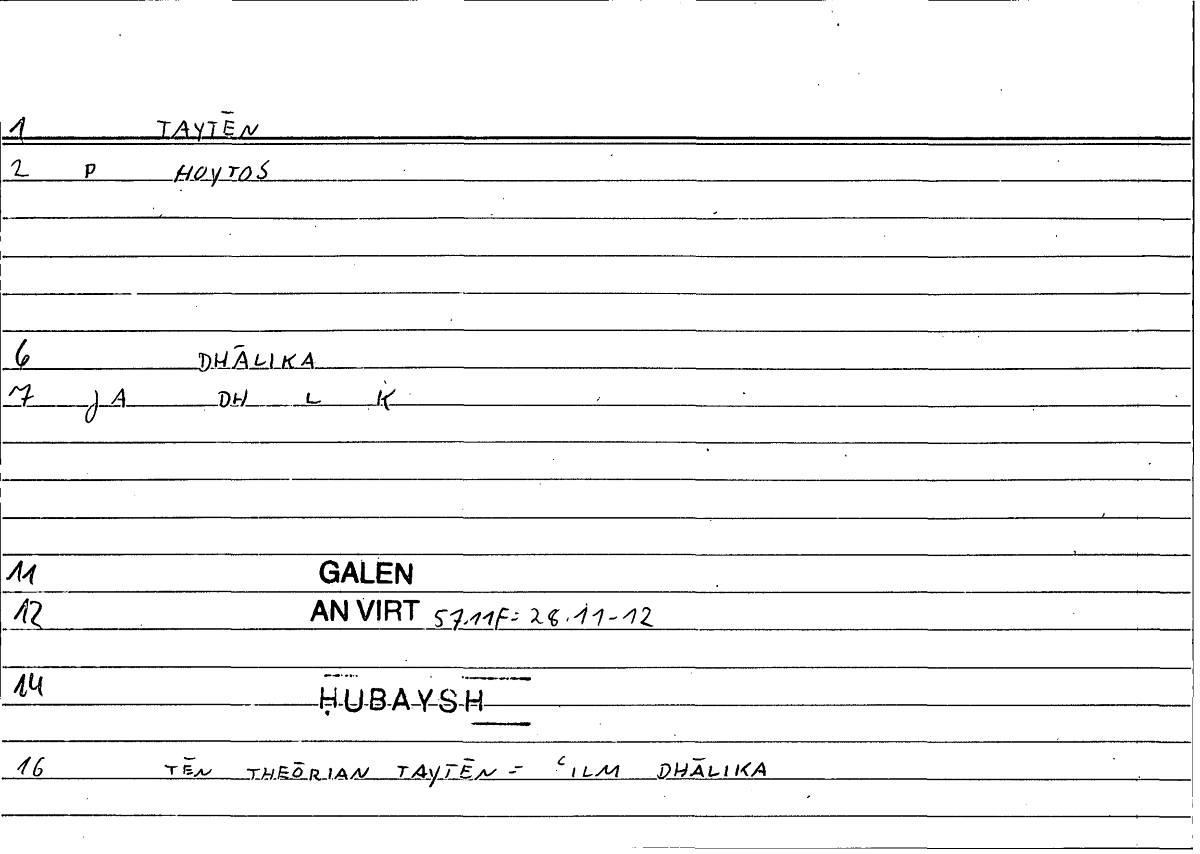 1 TAYTĒN
2 P HOYTOS
6 DHĀLIKA
7 JA DH L K
11 GALEN
12 AN VIRT 57.11F = 28.11-12
14 ḤUBAYSH
16 TĒN THEŌRIAN TAYTĒN = ʿILM DHĀLIKA